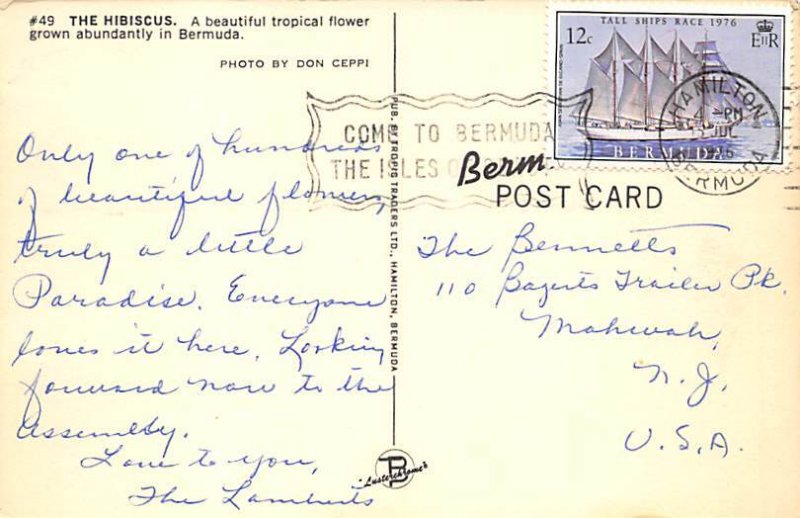 #49 THE HIBISCUS. A beautiful tropical flower
grown abundantly in Bermuda.
PHOTO BY DON CEPPI
Only one of hundreds
of beautiful flowers,
truly a little
Paradise. Everyone
loves it here. Looking
forward now to the
assembly.
Love to you,
The Lamberts
PUB. BY TROPIC TRADERS LTD., HAMILTON, BERMUDA
"Lusterchrome's
COME TO BERMUDA
THE ISLES
Berm
POST CARD
TALL SHIPS RACE 1976
12c
EIIR
BERMUDA
HAMILTON
PM
JUL
1976
BERMUDA
The Bennetts
110 Bogerts Trailer Pk.
Mahwah,
N.J.
U.S.A.